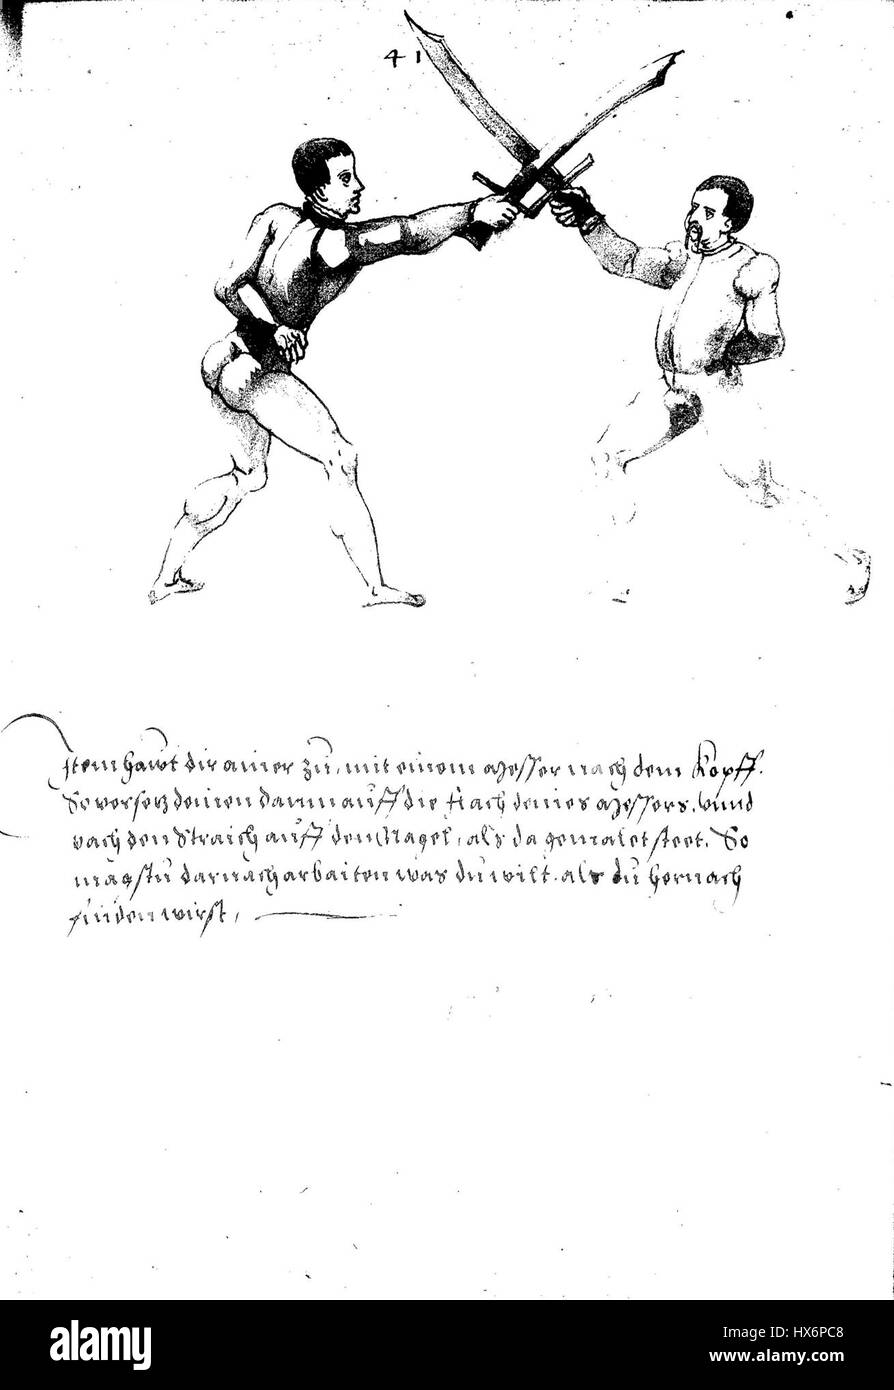 41
Item hawt dir ainer zu, mit einem Messer nach dem Kopff.
So versetz dennen darm auff die flach deines Messers, vnnd
vach den Straich auff dem Nagel, als da gemalet steet. So
magstu darnach arbaiten was du wilt. als du hernach
finden wirst.
alamy
Image ID: HX6PC8
www.alamy.com